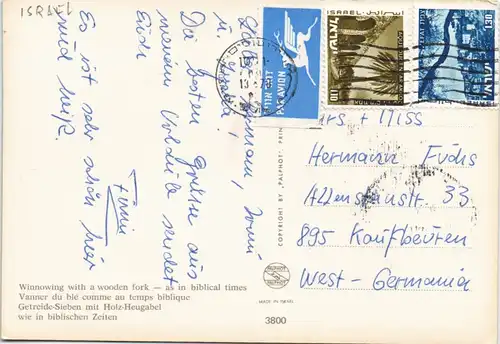 ISRAEL
Hermann,
u.
Die besten Grüße aus
meinem Urlaub sendet
Euch
Es ist sehr schön hier
und heiß.
PAR AVION
ISRAEL
100
130
Mrs + Miss
Hermann Fuchs
Allensteinstr. 33
895 Kaufbeuren
West-Germania
COPYRIGHT BY "PALPHOT"
PALPHOT
MADE IN ISRAEL
3800
Winnowing with a wooden fork — as in biblical times
Vanner du blé comme au temps biblique
Getreide-Sieben mit Holz-Heugabel
wie in biblischen Zeiten